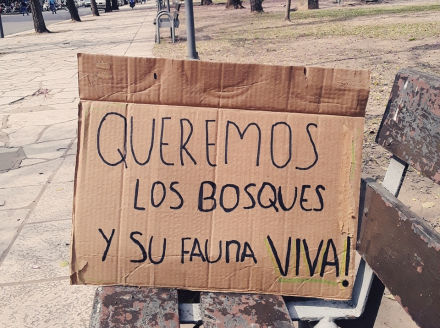 QUEREMOS
LOS BOSQUES
Y SU FAUNA VIVA!